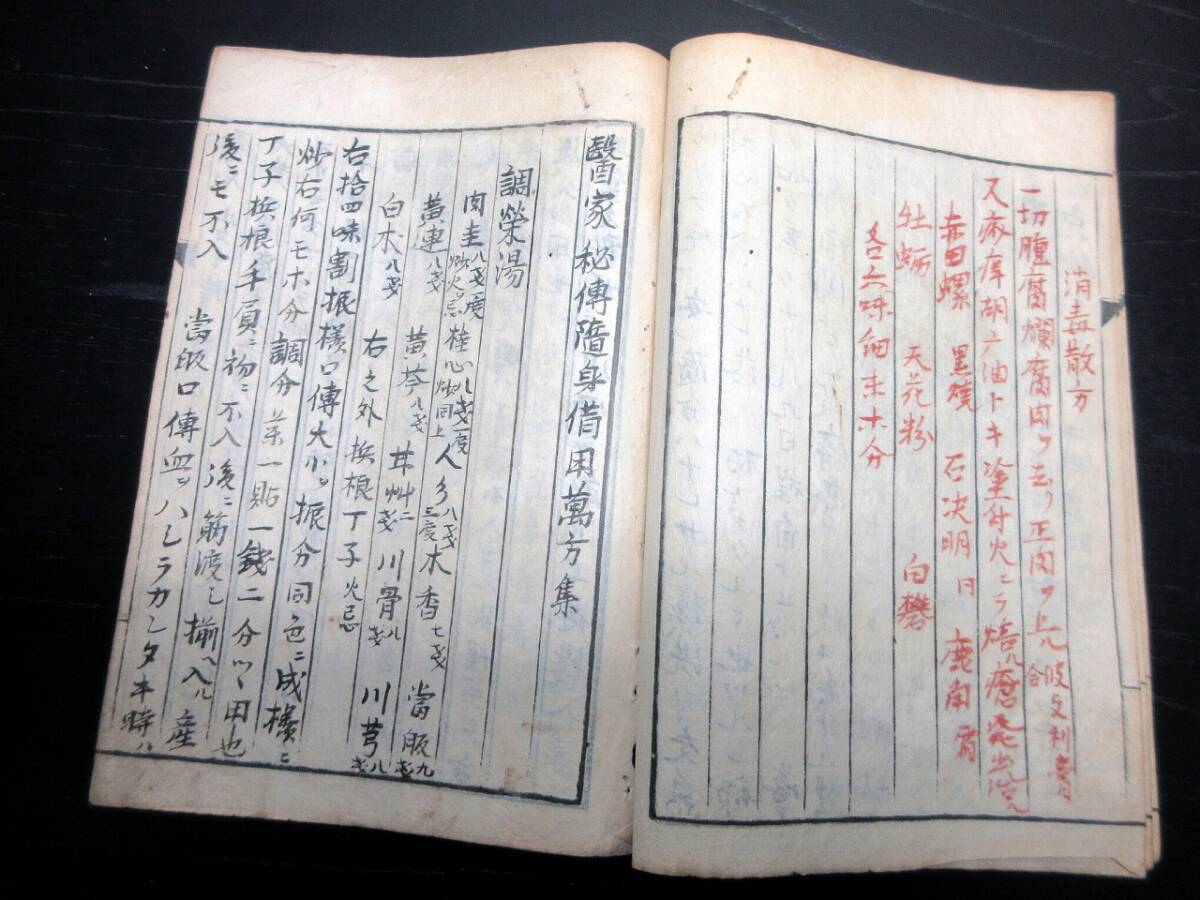 消毒散方
一切腫腐爛腐肉ヲ去リ正肉ヲ上ル
又疼痒胡戸油トキ塗付火ニテ焙ル瘡
赤田螺 黒焼 石决明 日 鹿角霜
牡蛎 天花粉 白礬
各六味細末木分
醫家秘傳隨身借用萬方集
調榮湯
肉圭 八戔 度 炒火忌 桂心 八戔 度 炒同上 人参 八戔 三度 木香 七戔 當皈 九戔
黄連 八戔 黄芩 八戔 甘艸 二戔 川骨 八戔 川芎 八戔
白朮 八戔 右之外 梹榔 丁子 火忌
右拾四味割振様口傳大小ヲ振分同色ニ成様ニ
炒右何モホ分調分 一貼一錢二分ツヽ用也
丁子梹榔手負ニ初ニ不入後ニ筋渡ニ揃ヘ入ル産
後ニモ不入 當皈口傳血ヲハシラカシタキ時ハ